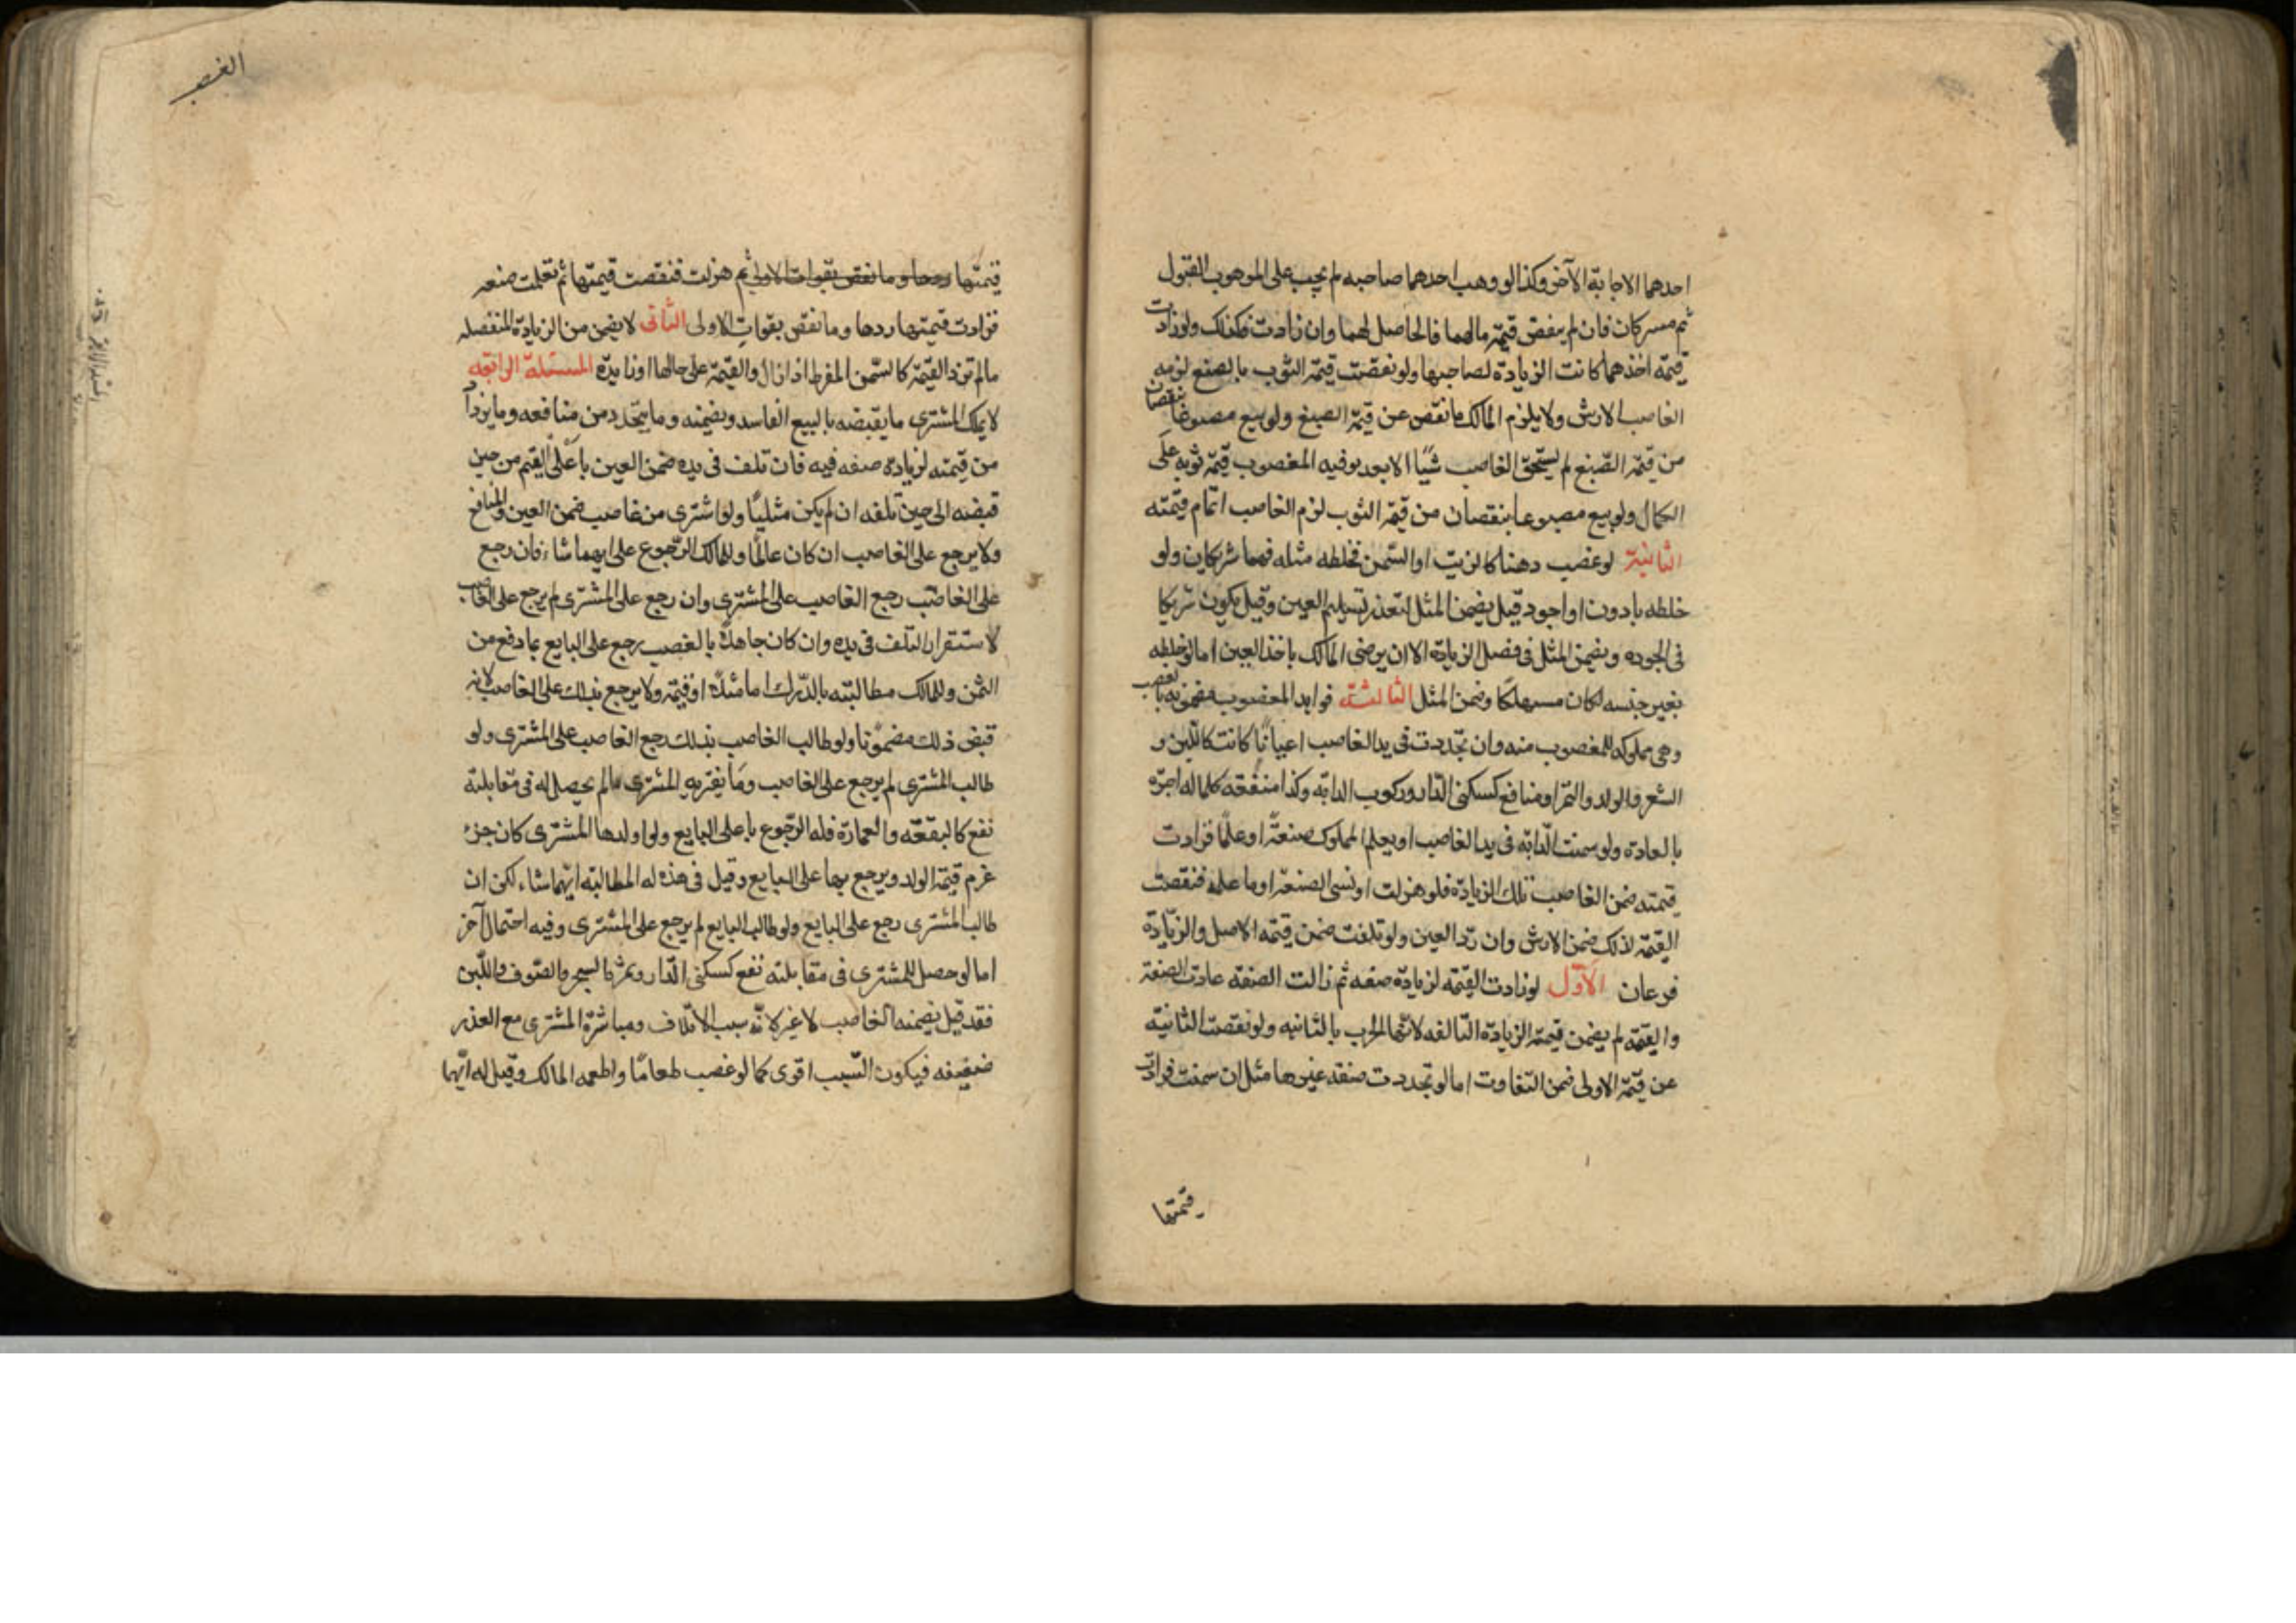 احدهما الاجابة الآخر وكذا لو وهب احدهما صاحبه لم يجب على الموهوب القبول
ثم مسركان فان لم ينقص قيمة مالهما فالحاصل لهما وان زادت فكذلك ولو زادت
قيمة احدهما كانت الزيادة لصاحبها ولو نقصت قيمة الثوب بالصبغ لزمه
الغاصب الارش ولا يلزم المالك ما نقص عن قيمة الصبغ ولو بيع مصبوغا بنقصان
من قيمة الصبغ لم يستحق الغاصب شيئا الا بعد توفيه المغصوب قيمة ثوبه على
الكمال ولو بيع مصبوغا بنقصان من قيمة الثوب لزم الغاصب اتمام قيمته
الثانية لو غصب دهنا كالزيت او السمن فخلطه مثله فهما شريكان ولو
خلطه بادون او اجود قيل يضمن المثل لتعذر تسليم العين وقيل يكون شريكا
فى الجوده ويضمن المثل فى فضل الزيادة الا ان يرضى المالك باخذ العين اما لو خلطه
بغير جنسه لكان مستهلكا وضمن المثل الثالثة فوايد المغصوب مضمونه بالغصب
وهى مملوكه للمغصوب منه وان تجددت فى يد الغاصب اعيانا كانت كاللبن و
الشعر والولد والثمر او منافع كسكنى الدار وركوب الدابه وكذا منفعة كلما له اجرة
بالعادة ولو سمنت الدابه فى يد الغاصب او يعلم المملوك صنعة او علما فزادت
قيمته ضمن الغاصب تلك الزيادة فلو هزلت او نسى الصنعة او ما علمه فنقصت
القيمة لذلك ضمن الارش وان رد العين ولو تلفت ضمن قيمة الاصل والزيادة
فرعان الاول لو زادت القيمة لزيادة صفه ثم زالت الصفه عادت الصفة
والقيمة لم يضمن قيمة الزيادة التالفه لانها انجبرت بالثانيه ولو نقصت الثانية
عن قيمة الاولى ضمن التفاوت اما لو تجددت صفه غيرها مثل ان سمنت فزادت
قيمتها
الغصب
قيمتها ردها وما نقص بفوات الاولى ثم هزلت فنقصت قيمتها ثم تعلمت صنعه
فزادت قيمتها ردها وما نقص بفوات الاولى الثانى لا يضمن من الزيادة المتصله
ما لم تزد القيمة كالسمن المفرط اذا زال والقيمة على حالها او زايدة المسئلة الرابعة
لا يملك المشترى ما يقبضه بالبيع الفاسد ويضمنه وما يتجدد من منافعه وما يزداد
من قيمته لزيادة صفه فيه فان تلف فى يده ضمن العين باعلى القيم من حين
قبضه الى حين تلفه ان لم يكن مثليا ولو اشترى من غاصب ضمن العين والمنافع
ولا يرجع على الغاصب ان كان عالما وللمالك الرجوع على ايهما شاء فان رجع
على الغاصب رجع الغاصب على المشترى وان رجع على المشترى لم يرجع على الغاصب
لاستقرار التلف فى يده وان كان جاهلا بالغصب رجع على البايع بما دفع من
الثمن وللمالك مطالبته بالدرك اما مثلا او قيمة ولا يرجع بذلك على الغاصب لانه
قبض ذلك مضمونا ولو طالب الغاصب بذلك رجع الغاصب على المشترى ولو
طالب المشترى لم يرجع على الغاصب وما يغترم المشترى مالم يحصل له فى مقابلته
نفع كالبقعه والعمارة فله الرجوع به على البايع ولو اولدها المشترى كان حرا
غرم قيمة الولد ويرجع بها على البايع وقيل فى هذه له المطالبة ايهما شاء لكن ان
طالب المشترى رجع على البايع ولو طالب البايع لم يرجع على المشترى وفيه احتمال آخر
اما لو حصل للمشترى فى مقابلته نفع كسكنى الدار وثمرة الشجر والصوف واللبن
فقد قيل يضمنه الغاصب لا غير لانه سبب الاتلاف ومباشرة المشترى مع العذر
ضعيفه فيكون السبب اقوى كما لو غصب طعاما واطعمه المالك وقيل له ايهما